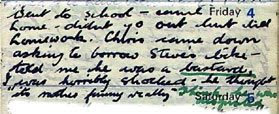 Went to school - came Friday 4
home - didn't go out but did
homework. Chris came down
asking to borrow Steve's bike -
told me he was a bastard.
I was horribly shocked - he thought
its rather funny really
Saturday 5